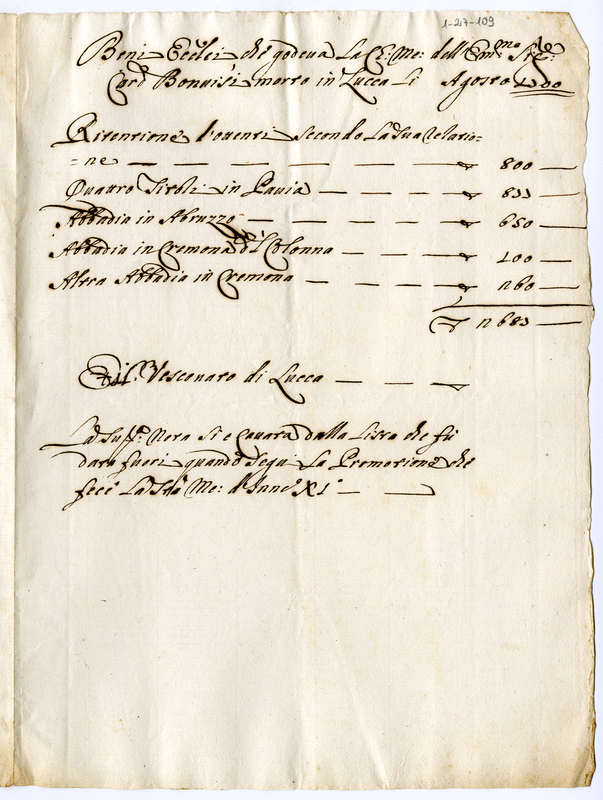 1-27-109
Beni Eccl.ci che godeva La Ch: Me: dell Em.mo Sig.re
Card Bonuisi morto in Lucca Li Agosto 1700
Ritentione d'ouenti secondo La Sua relatio=
=ne — — — — — — — 800 —
Quattro Titoli in Pavia — — — — 833 —
Abbadia in Abruzzo — — — — — 650 —
Abbadia in Cremona d.a Colonna — — — 100 —
Altra Abbadia in Cremona — — — — 260 —
2683 —
Il Vescouato di Lucca — — —
La Sud.a Nota si è Cauata dalla Lista che fù
data fuori quando segui La Promotione che
fece La Sta Me: d'Inno XI° — —